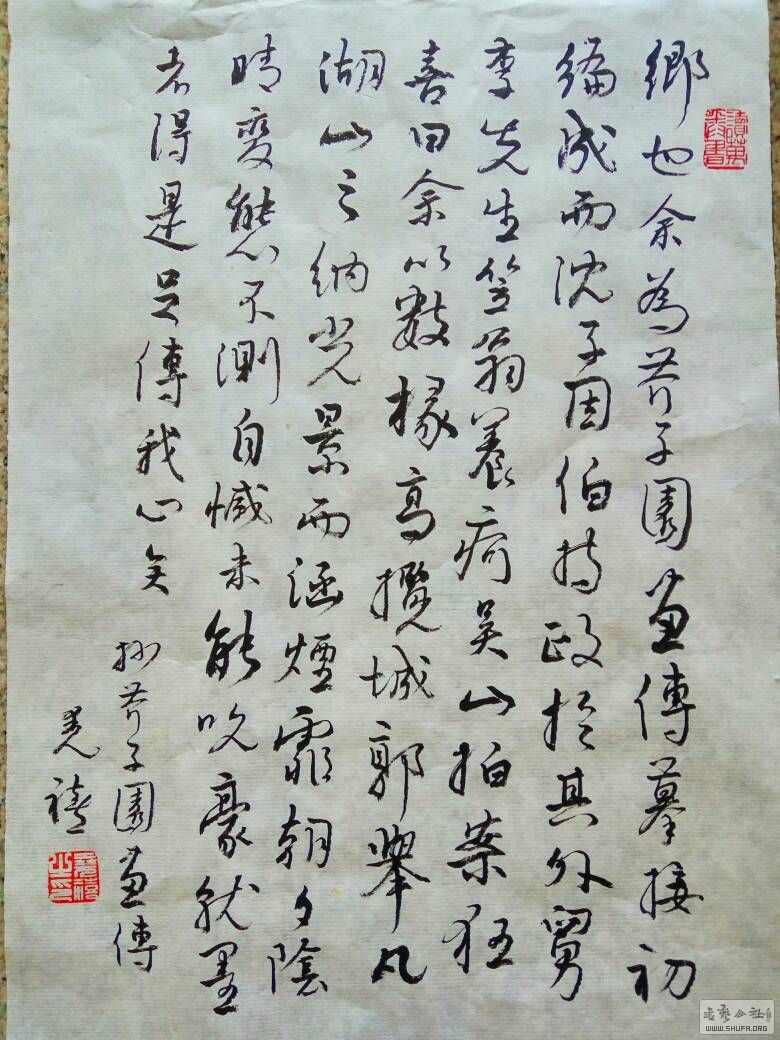 鄉也余為芥子園畫傳摹接初
編成而沈子因伯持政於其外舅
李先生笠翁養疴吳山拍案狂
喜曰余以數椽高攬城郭舉凡
湖山之納光景而涵煙霏朝夕陰
晴變態不測自憾未能吮豪狀墨
者得是足傳我心矣
抄芥子園畫傳
禧
讀萬
卷書
WWW.SHUFA.ORG